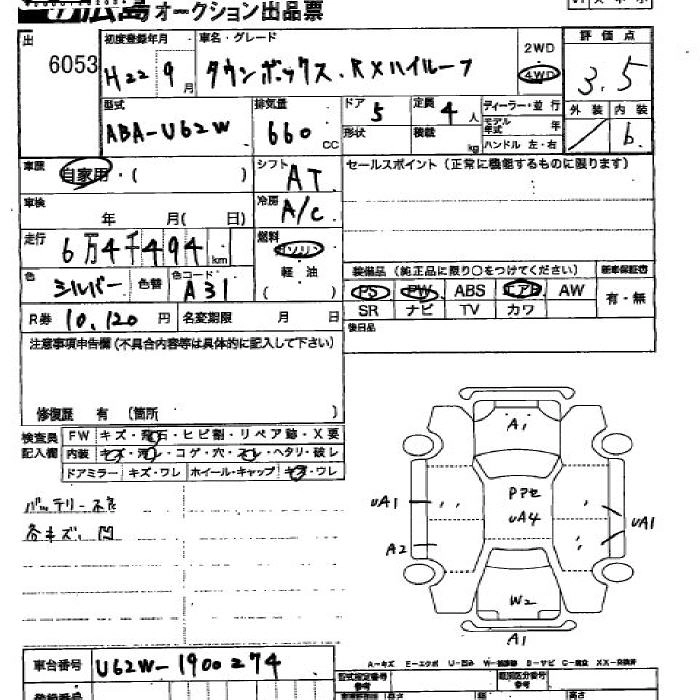 広島 オークション出品票
出
6053
初度登録年月
H22 9月
車名・グレード
タウンボックス・RXハイルーフ
2WD
4WD
評価点
3.5
型式
ABA-U62W
排気量
660 CC
ドア
5
定員
4人
形状
積載
kg
ディーラー・並行
モデル年式
年
ハンドル 左・右
外装
内装
b.
車歴
自家用・( )
シフト
AT
セールスポイント(正常に機能するものに限ります)
車検
年 月( 日)
冷房
A/C
走行
6万4千494 km
燃料
ガソリン
軽油
( )
色
シルバー
色替
色コード
A31
装備品(純正品に限り○をつけてください)
新車保証書
PS PW ABS エアB AW
SR ナビ TV カワ
有・無
R券 10,120円
名変期限 月 日
後日品
注意事項申告欄(不具合内容等は具体的に記入して下さい)
修復歴 有(箇所 )
検査員記入欄
FW キズ・飛石・ヒビ割・リペア跡・X要
内装 キズ・汚レ・コゲ・穴・スレ・ヘタリ・破レ
ドアミラー キズ・ワレ ホイール・キャップ キズ・ワレ
バッテリー不良
各キズ、凹
A1
Pアセ
UA4
UA1
UA1
A2
W2
A1
A-キズ E-エクボ U-凹み
車台番号
U62W-1900274
型式指定番号
参考
類別区分番号
参考